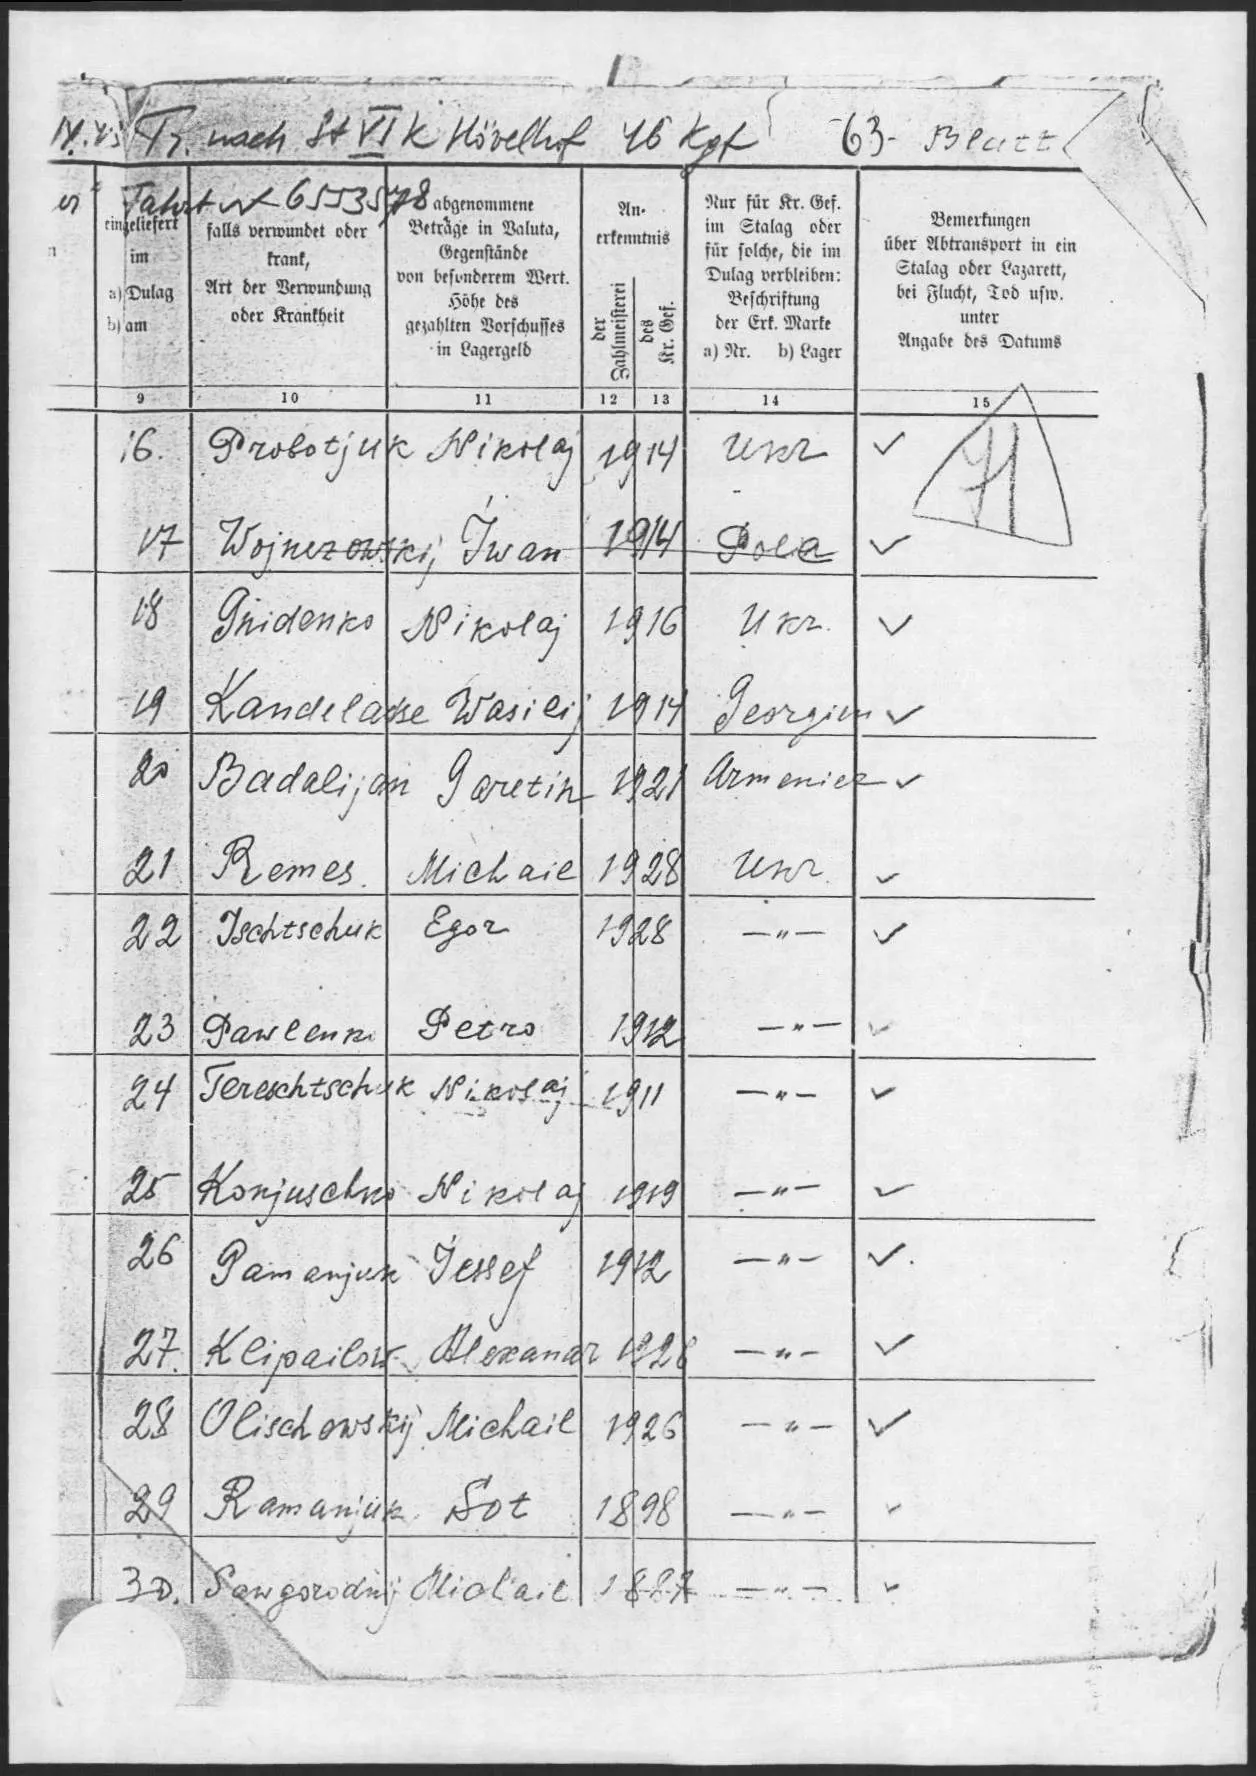 IV. 43 Tr. nach St VI K Hövelhof 46 Kgf -63- Blatt
Fahrt Nr 6553578
eingeliefert
im
a) Dulag
b) am
falls verwundet oder
krank,
Art der Verwundung
oder Krankheit
abgenommene
Beträge in Valuta,
Gegenstände
von besonderem Wert.
Höhe des
gezahlten Vorschusses
in Lagergeld
An-
erkenntnis
der
Zahlmeisterei
des
Kr. Gef.
Nur für Kr. Gef.
im Stalag oder
für solche, die im
Dulag verbleiben:
Beschriftung
der Erk. Marke
a) Nr. b) Lager
Bemerkungen
über Abtransport in ein
Stalag oder Lazarett,
bei Flucht, Tod usw.
unter
Angabe des Datums
9 10 11 12 13 14 15
71
16. Probotjuk Nikolaj 1914 Ukr ✓
17 Wojnezowskij Iwan 1914 Pole ✓
18 Gnidenko Nikolaj 1916 Ukr. ✓
19 Kandelakse Wasilij 1914 Georgien ✓
20 Badalijan Garetin 1921 Armenier ✓
21 Remes. Michail 1928 Ukr. ✓
22 Ischtschuk Egor 1928 — " — ✓
23 Pawlenko Petro 1912 — " — ✓
24 Tereschtschuk Nikolaj 1911 — " — ✓
25 Konjuschko Nikolaj 1919 — " — ✓
26 Pamanjuk Iessef 1912 — " — ✓
27. Klipailow Alexandr 1926 — " — ✓
28 Olischowskij Michail 1926 — " — ✓
29 Ramanjuk Sot 1898 — " — ✓
30. Sawgorodnij Michail 1887 — " — ✓